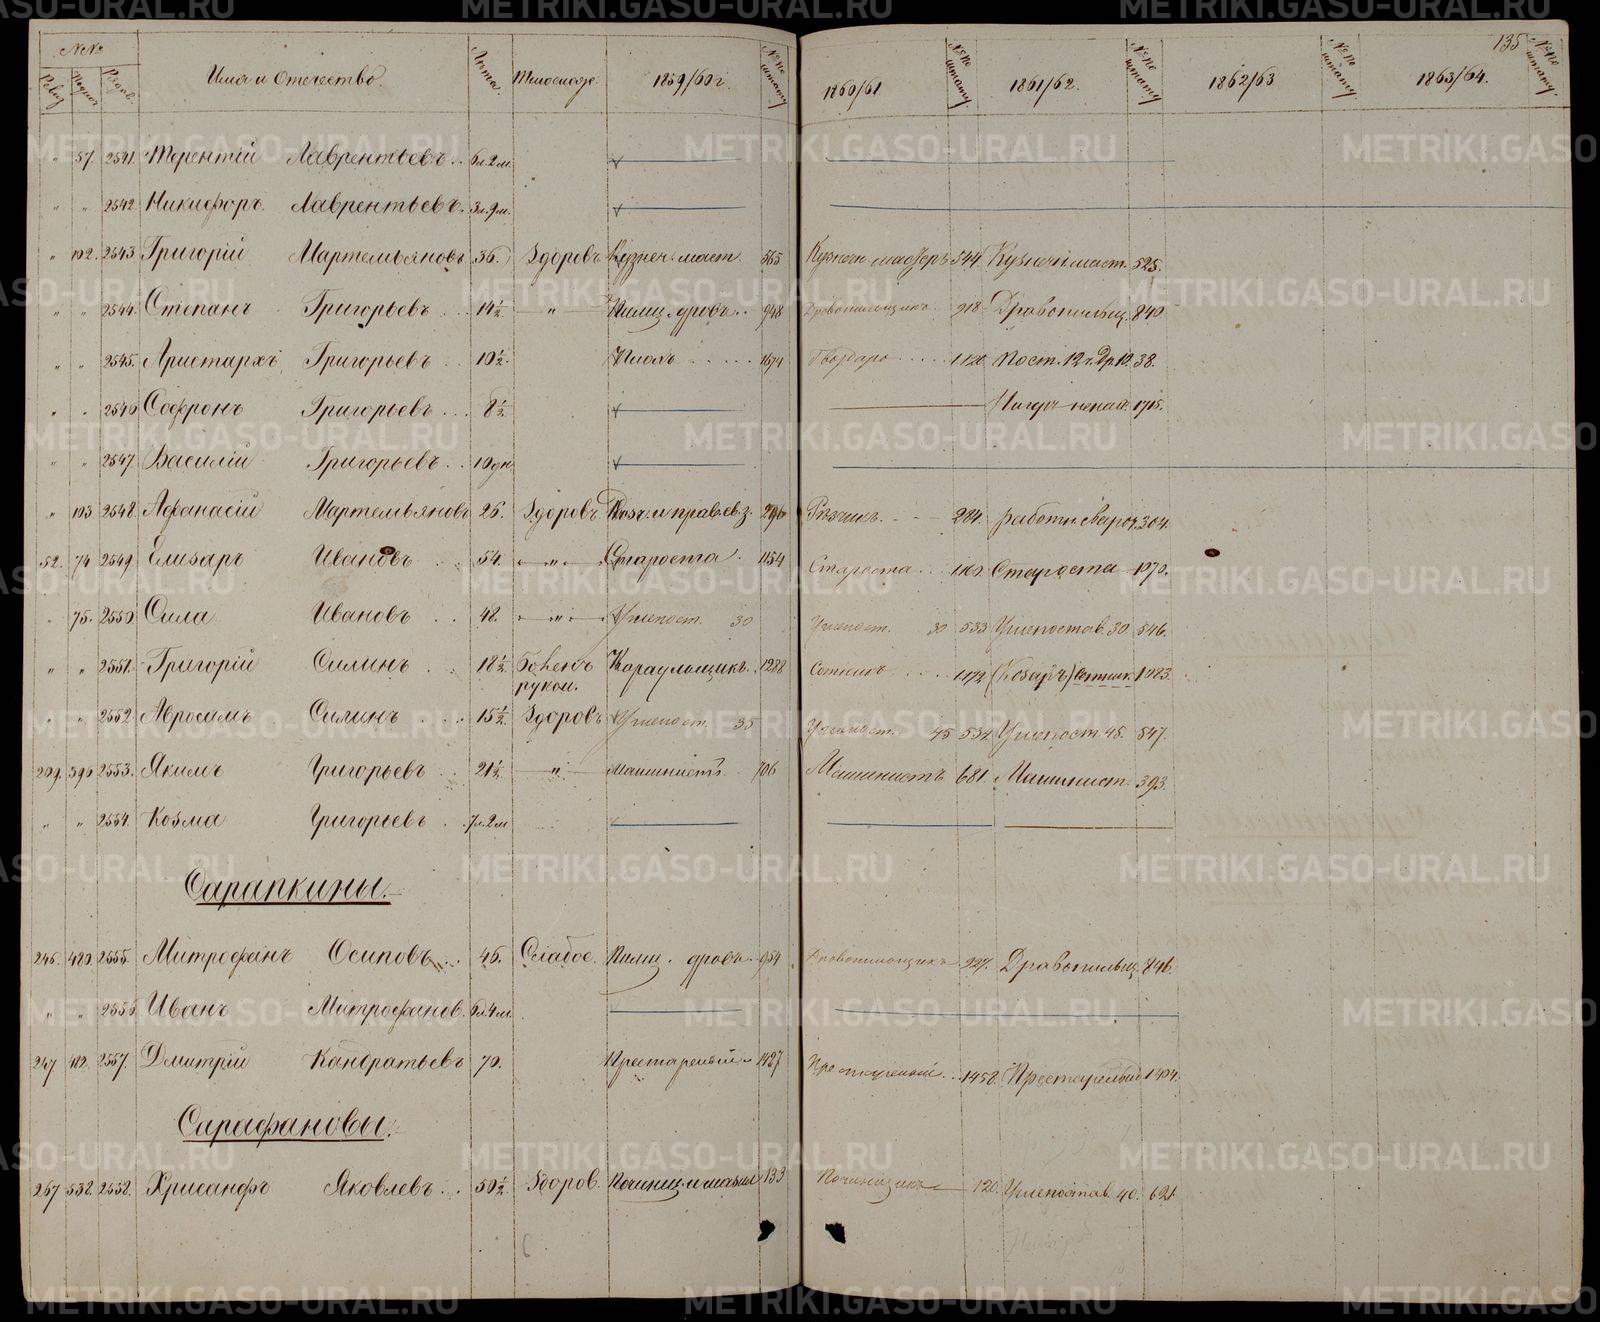 №№ Имя и Отечество. Лета. Телосложе: 1859/60 г. №№ по штату 1860/61 №№ по штату 1861/62. №№ по штату 1862/63 №№ по штату 1863/64. №№ по штату 135
" 57. 2541. Терентій Лаврентьевъ .. 6 л. 2 м.
" " 2542. Никифоръ Лаврентьевъ. 3 л. 9 м.
" 102. 2543 Григорій Мартемьяновъ 36. Здоровъ Кузнеч. маст. 565 Кузнечн. мастеръ 544. Кузнечн. маст. 525.
" " 2544. Степанъ Григорьевъ ... 14½ " Пилщ. дровъ .. 948 Дровопильщикъ 918. Дровопильщ. 840
" " 2545. Аристархъ Григорьевъ .. 10½. Школъ ..... 1674 Гвоздарь .... 1120. Пост. 12 ч. Др. 12. 38.
" " 2546 Софронъ Григорьевъ ... 8½ 1715.
" " 2547. Василій Григорьевъ .. 10 дн.
" 103. 2548. Афанасій Мартемьяновъ 26. Здоровъ. 296 Рѣзчикъ. 284. работн. сварοч. 304.
52. 74 2549. Елизаръ Ивановъ .. 54. " Староста . 1154 Староста .. 1160. Староста 1070.
" 75. 2550. Сила Ивановъ .. 48. " Углепост. 30 Углепост. 30 533 Углепостав. 30 546.
" " 2551. Григорій Силинъ ... 18½. Боленъ рукой. Караульщикъ. 1288 Сотникъ .... 1172 Сотник 1083.
" " 2552 Авросимъ Силинъ .... 15½. Здоровъ Углепост. 35 Углепост. 45 534. Углепост. 45. 547.
209. 396 2553. Якимъ Григорьевъ .. 21½ " Машинистъ .. 706 Машинистъ 681. Машинист. 393.
" " 2554. Козма Григорьевъ . 7 л. 2 м
Сарапкины.
246. 480. 2555. Митрофанъ Осиповъ ... 46. Слабое. Пилщ. дровъ. 954 Дровопильщикъ 927. Дровопильщ. 846.
" " 2556 Иванъ Митрофанов. 6 л. 4 м.
247 482. 2557. Дмитрій Кандратьевъ 70. Престарелый .. 1427 Престарелый .. 1458. Престарелый 1404.
Сарафановы.
267 538. 2558. Хрисанфъ Яковлевъ ... 50½. Здоров. 133 Починщикъ 120. Углепостав. 40. 621.
METRIKI.GASO-URAL.RU